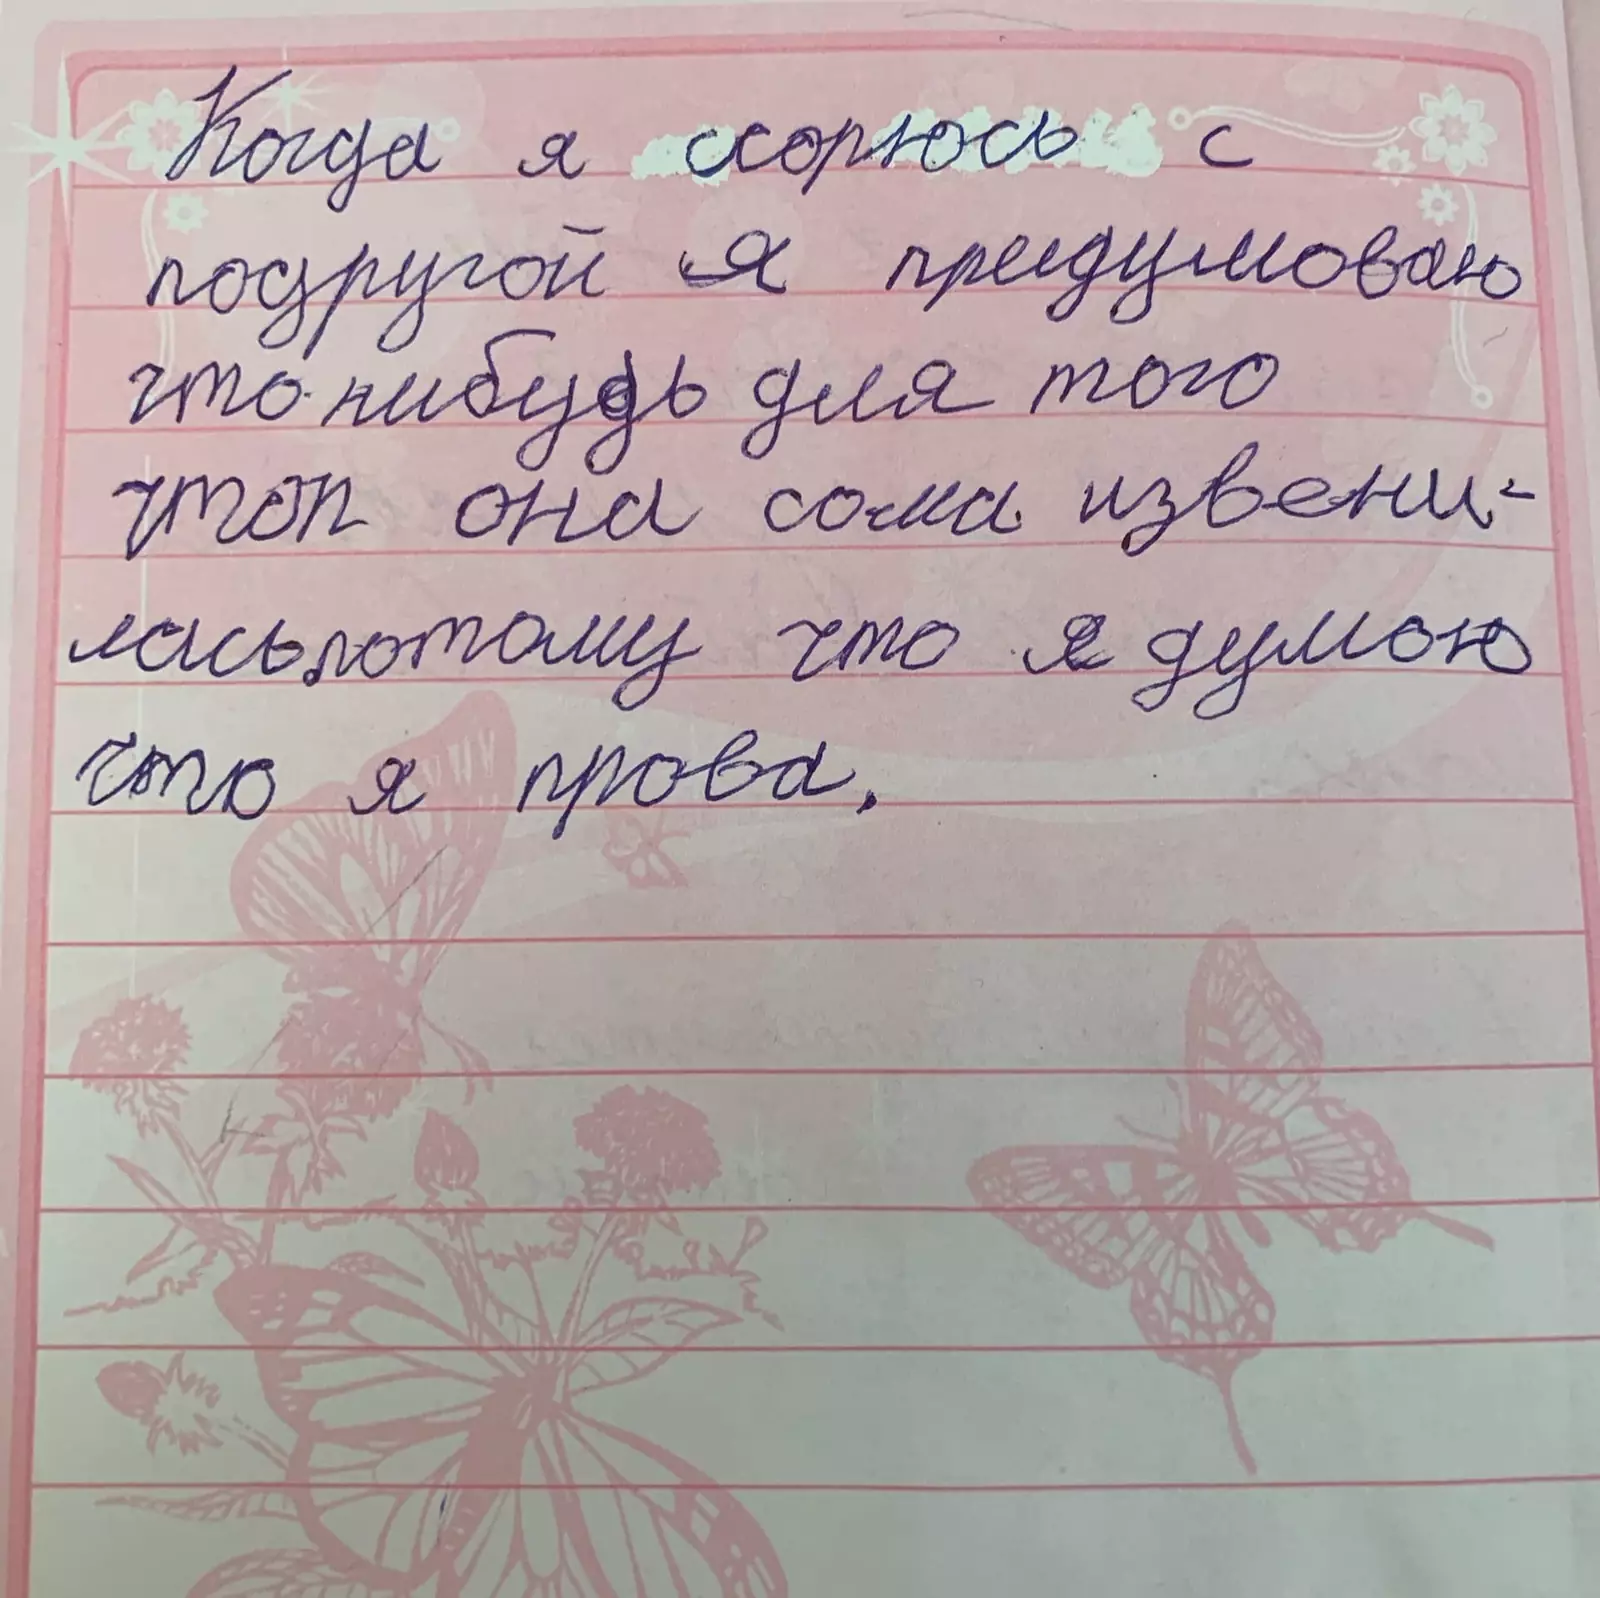 Когда я ссорюсь с
подругой я придумоваю
что-нибудь для того
чтоп она сома извени-
лась потому что я думою
что я прова.